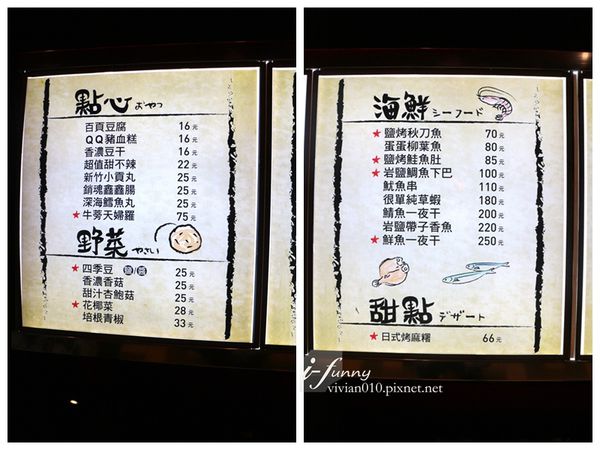 點心 おやつ
百頁豆腐 16元
QQ豬血糕 16元
香濃豆干 16元
超值甜不辣 22元
新竹小貢丸 25元
銷魂鑫鑫腸 25元
深海鱈魚丸 25元
★牛蒡天婦羅 75元
野菜 やさい
★四季豆 鹽/醬 25元
香濃香菇 25元
甜汁杏鮑菇 25元
★花椰菜 28元
培根青椒 33元
海鮮 シーフード
★鹽烤秋刀魚 70元
蛋蛋柳葉魚 80元
★鹽烤鮭魚肚 85元
★岩鹽鯛魚下巴 100元
魷魚串 110元
很單純草蝦 180元
鯖魚一夜干 200元
岩鹽帶子香魚 220元
★鮮魚一夜干 250元
甜點 デザート
★日式烤麻糬 66元
i-funny
vivian010.pixnet.net